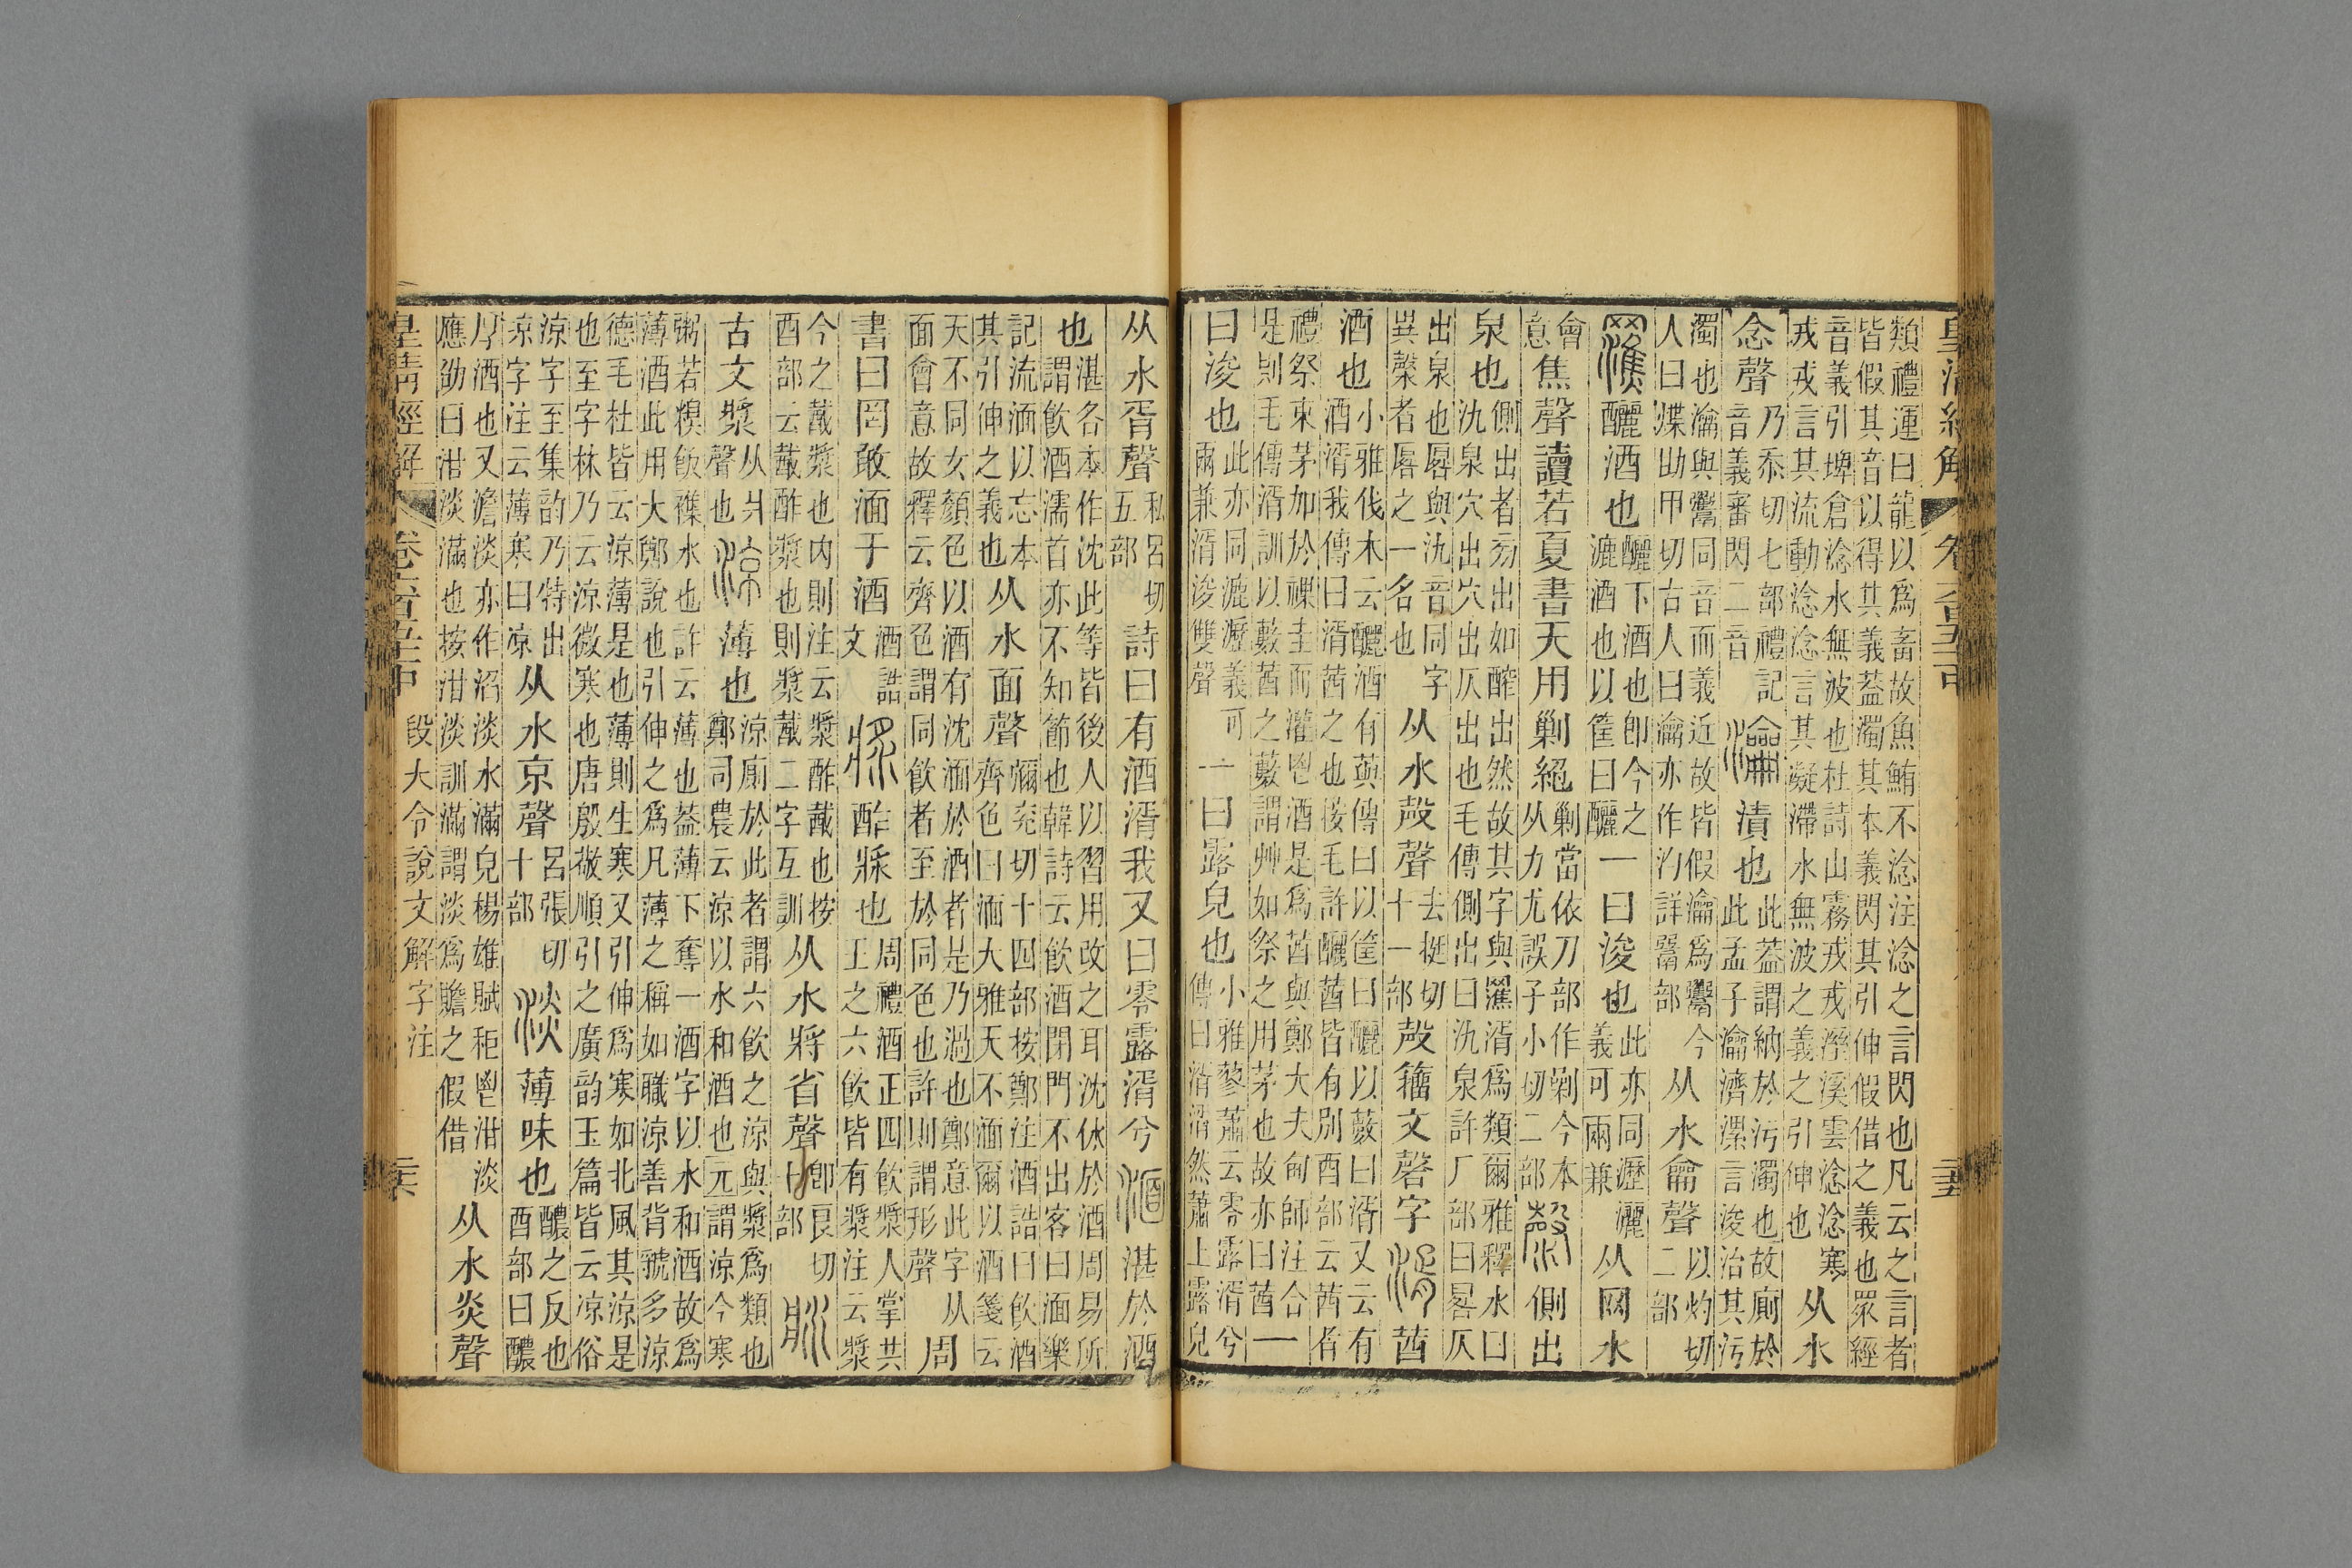 皇清經解 卷六百五十一中
類禮運曰龍以爲畜故魚鮪不淰注淰之言閃也凡云之言者
皆假其音以得其義葢濁其本義閃其引伸假借之義也眾經
音義引埤倉淰水無波也杜詩山霧戎戎溼溪雲淰淰寒
戎戎言其流動淰淰言其凝滯水無波之義之引伸也
从水
念聲
乃忝切七部禮記
音義審閃二音
瀹漬也
此葢謂納於污濁也故廁於
此孟子瀹濟漯言浚治其污
濁也瀹與鬻同音而義近故皆假瀹爲鬻今
人曰煠助甲切古人曰瀹亦作汋詳䰜部
从水龠聲
以灼切
二部
釃酒也
釃下酒也卽今之
漉酒也以筐曰釃
一曰浚也
此亦同瀝灑
義可兩兼
从网水
會
意
焦聲讀若夏書天用勦絕
勦當依刀部作剿今本
从力尤誤子小切二部
漀側出
泉也
側出者㫄出如醡出然故其字與㶍湑爲類爾雅釋水曰
氿泉穴出穴出仄出也毛傳側出曰氿泉許厂部曰厬仄
出泉也厬與氿音同字
異漀者厬之一名也
从水殸聲
去挺切
十一部
殸籒文磬字湑茜
酒也
小雅伐木云釃酒有藇傳曰以筐曰釃以藪曰湑又云有
酒湑我傳曰湑茜之也按毛許釃茜皆有別酉部云茜者
禮祭束茅加於祼圭而灌鬯酒是爲茜與鄭大夫甸師注合一
是則毛傳湑訓以藪茜之藪謂艸如祭之用茅也故亦曰茜
曰浚也
此亦同漉瀝義可
兩兼湑浚雙聲
一曰露皃也
小雅蓼蕭云零露湑兮
傳曰湑湑然蕭上露皃
从水胥聲
私呂切
五部
詩曰有酒湑我又曰零露湑兮湎湛於酒
也
湛各本作沈此等皆後人以習用改之耳沈休於酒周易所
謂飮酒濡首亦不知節也韓詩云飮酒閉門不出客曰湎樂
記流湎以忘本
其引伸之義也
从水面聲
彌兗切十四部按鄭注酒誥曰飮酒
齊色曰湎大雅天不湎爾以酒箋云
天不同女顏色以酒有沈湎於酒者是乃過也鄭意此字从
面會意故釋云齊色謂同飮者至於同色也許則謂形聲
周
書曰罔敢湎于酒
酒誥
文
漿酢漿也
周禮酒正四飮漿人掌共
王之六飮皆有漿注云漿
今之䣧漿也內則注云漿酢䣧也按
酉部云䣧酢漿也則漿䣧二字互訓
从水將省聲
卽良切
十部
古文漿
从爿
聲也
涼薄也
涼廁於此者謂六飮之涼與漿爲類也
鄭司農云涼以水和酒也元謂涼今寒
粥若糗飯襍水也許云薄也葢薄下奪一酒字以水和酒故爲
薄酒此用大鄭說也引伸之爲凡薄之稱如職涼善背虢多涼
德毛杜皆云涼薄是也薄則生寒又引伸爲寒如北風其涼是
也至字林乃云涼微寒也唐殷敬順引之廣韵玉篇皆云凉俗
涼字至集韵乃特出
凉字注云薄寒曰凉
从水京聲
呂張切
十部
淡薄味也
醲之反也
酉部曰醲
厚酒也又澹淡亦作淊淡水滿皃楊雄賦秬鬯泔淡
應劭曰泔淡滿也按泔淡訓滿謂淡爲贍之假借
从水炎聲
皇清經解 卷六百五十一中 段大令說文解字注